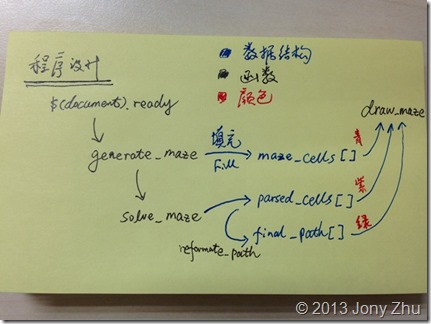 程序设计
数据结构
函数
颜色
$(document).ready
draw_maze
generate_maze
填充
Fill
maze_cells[]
青
solve_maze
parsed_cells[]
紫
reformate_path
final_path[]
绿
© 2013 Jony Zhu